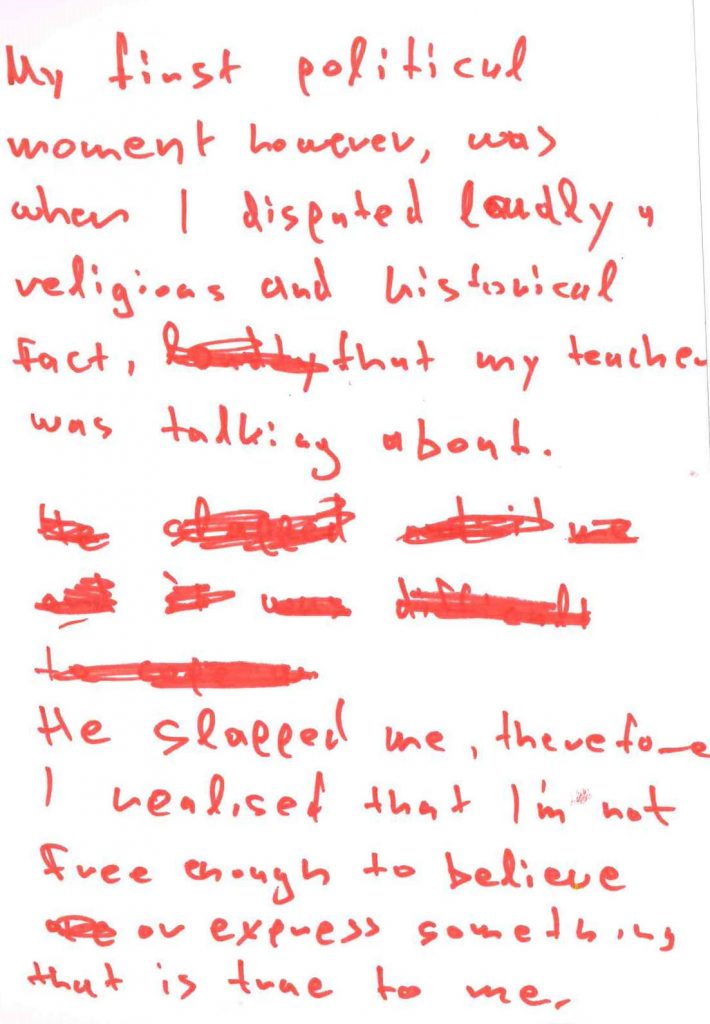 My first political
moment however, was
when I disputed loudly a
religious and historical
fact, that my teacher
was talking about.
He slapped me
it was difficult
He slapped me, therefore
I realised that I'm not
free enough to believe
or express something
that is true to me.